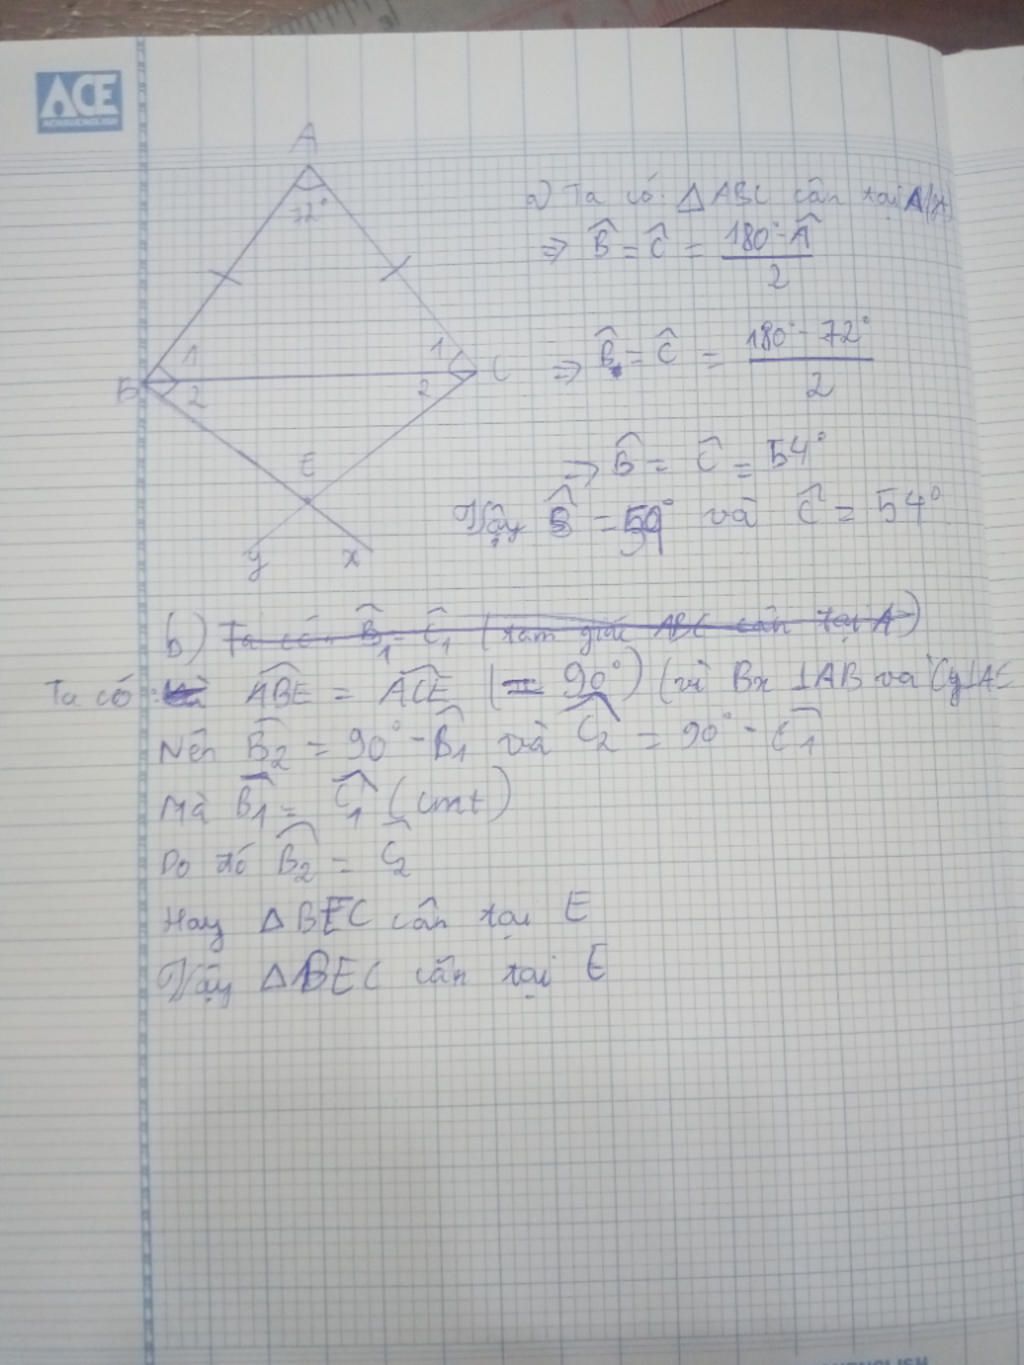 ACE
A
72°
1
1
B
2
2
C
E
y
x
a) Ta có: △ABC cân tại A (gt)
=> B̂ = Ĉ = (180° - Â)/2
=> B̂ = Ĉ = (180° - 72°)/2
=> B̂ = Ĉ = 54°
Vậy B̂ = 54° và Ĉ = 54°
b) Ta có B̂1 = Ĉ1 (tam giác ABC cân tại A)
Ta có ABE = ACE (= 90°) (vì Bx ⊥AB và Cy⊥AC
Nên B̂2 = 90° - B̂1 và Ĉ2 = 90° - Ĉ1
Mà B̂1 = Ĉ1 (cmt)
Do đó B̂2 = Ĉ2
Hay △BEC cân tại E
Vậy △BEC cân tại E